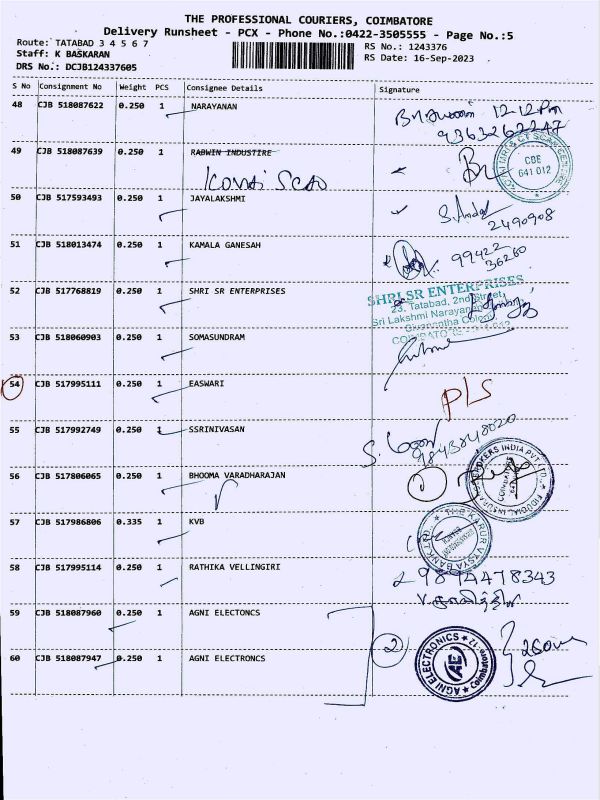 THE PROFESSIONAL COURIERS, COIMBATORE
Delivery Runsheet - PCX - Phone No.:0422-3505555 - Page No.:5
Route: TATABAD 3 4 5 6 7
RS No.: 1243376
Staff: K BASKARAN
RS Date: 16-Sep-2023
DRS No.: DCJB124337605
S No Consignment No Weight PCS Consignee Details Signature
48 CJB 518087622 0.250 1 NARAYANAN 12-12pm
9363262247
49 CJB 518087639 0.250 1 RABWIN INDUSTIRE
CBE
641 012
50 CJB 517593493 0.250 1 JAYALAKSHMI
2490908
51 CJB 518013474 0.250 1 KAMALA GANESAH 99422
36260
52 CJB 517768819 0.250 1 SHRI SR ENTERPRISES SHRI SR ENTERPRISES
23, Tatabad, 2nd Street,
Sri Lakshmi Narayana
53 CJB 518060903 0.250 1 SOMASUNDRAM
54 CJB 517995111 0.250 1 EASWARI P/S
55 CJB 517992749 0.250 1 SSRINIVASAN
56 CJB 517806065 0.250 1 BHOOMA VARADHARAJAN
57 CJB 517986806 0.335 1 KVB THE KARUR VYSYA BANK LTD.
58 CJB 517995114 0.250 1 RATHIKA VELLINGIRI 9894478343
59 CJB 518087960 0.250 1 AGNI ELECTONCS
60 CJB 518087947 0.250 1 AGNI ELECTRONCS 2 AGNI ELECTRONICS Coimbatore-12